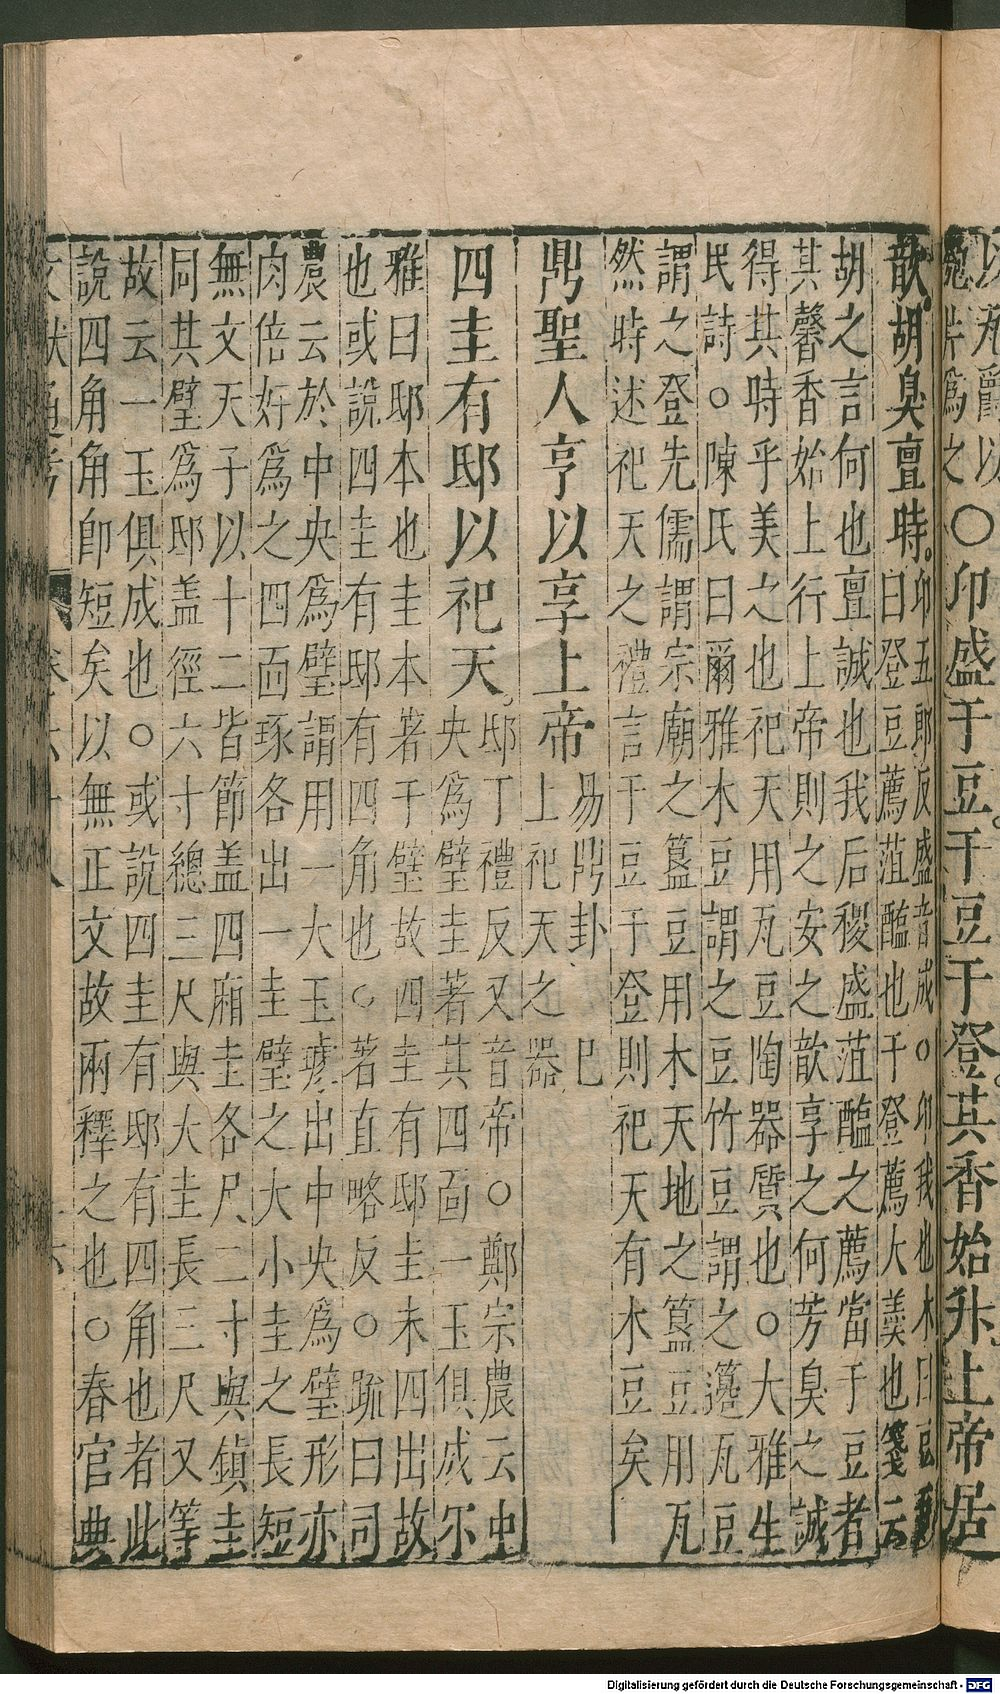 ○卬盛于豆。于豆于登。其香始升。上帝居
歆。胡臭亶時。
卬五郎反盛音成○卬我也木曰豆瓦
曰登豆薦菹醢也于登薦大羮也箋云
胡之言何也亶誠也我后稷盛菹醢之薦當于豆者
其馨香始上行上帝則之安之歆享之何芳臭之誠
得其時乎美之也祀天用瓦豆陶器質也○大雅生
民詩○陳氏曰爾雅木豆謂之豆竹豆謂之籩瓦豆
謂之登先儒謂宗廟之簋豆用木天地之簋豆用瓦
然時述祀天之禮言于豆于登則祀天有木豆矣
鼎聖人亨以享上帝
易鼎卦 已
上祀天之器
四圭有邸以祀天。
邸丁禮反又音帝○鄭宗農云中
央爲璧圭著其四面一玉俱成尔
雅曰邸本也圭本著于璧故四圭有邸圭末四出故
也或說四圭有邸有四角也○著直略反○疏曰司
農云於中央爲璧謂用一大玉琢出中央爲璧形亦
肉倍好爲之四面琢各出一圭璧之大小圭之長短
無文天子以十二皆節盖四廂圭各尺二寸與鎮圭
同其璧爲邸盖徑六寸總三尺與大圭長三尺又等
故云一玉俱成也○或說四圭有邸有四角也者此
說四角角卽短矣以無正文故兩釋之也○春官典
Digitalisierung gefördert durch die Deutsche Forschungsgemeinschaft - DFG